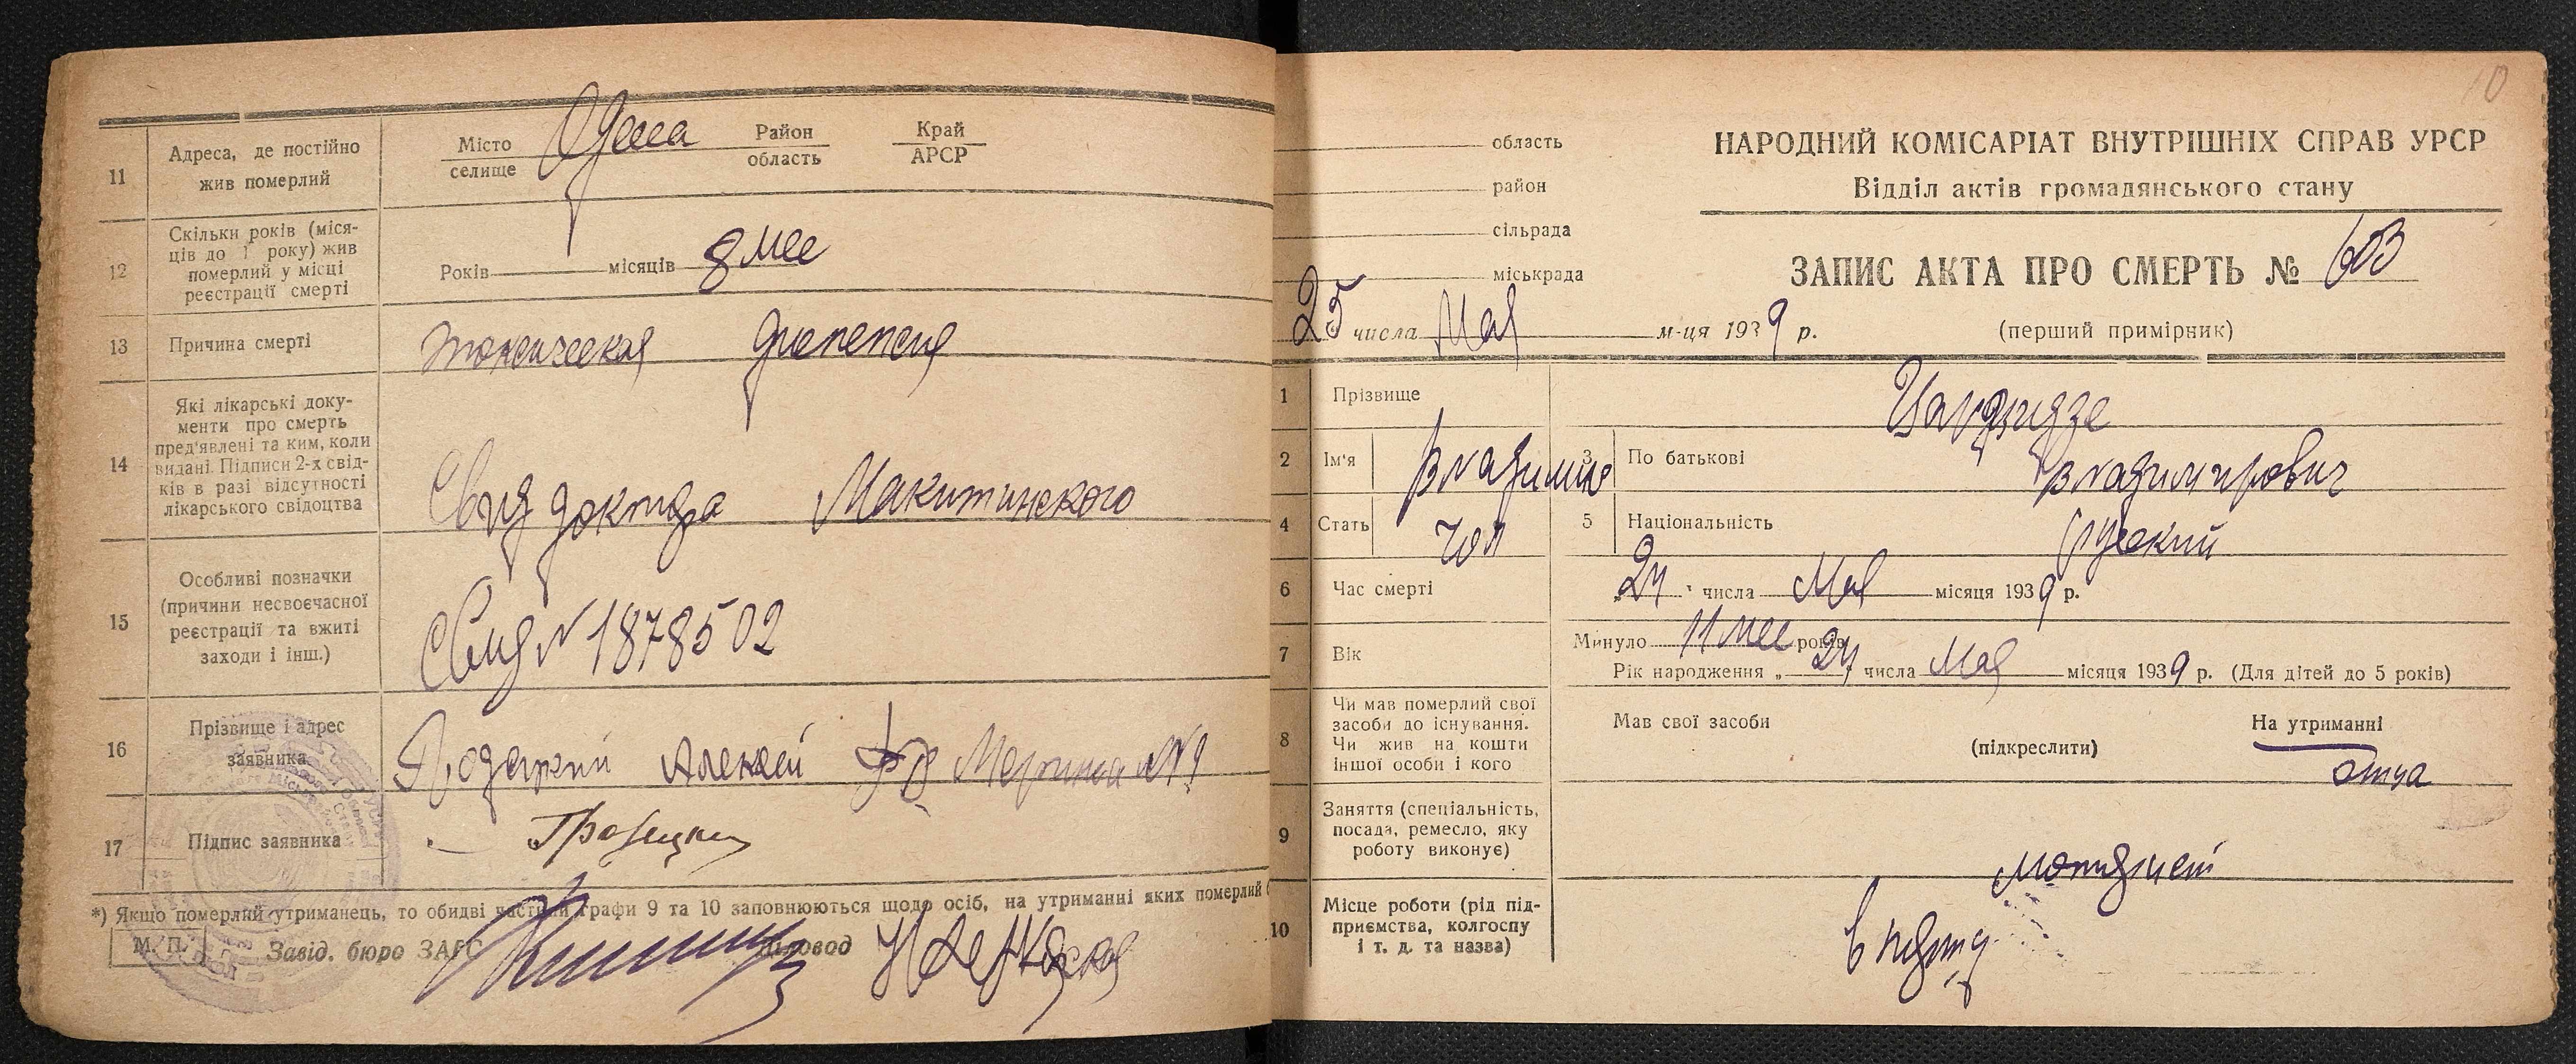 11
Адреса, де постійно
жив померлий
Місто
селище
Одесса
Район
область
Край
АРСР
12
Скільки років (міся-
ців до 1 року) жив
померлий у місці
реєстрації смерті
Років місяців 8 мес
13
Причина смерті
токсическая диспепсия
14
Які лікарські доку-
менти про смерть
пред'явлені та ким, коли
видані. Підписи 2-х свід-
ків в разі відсутності
лікарського свідоцтва
доктора
15
Особливі позначки
(причини несвоєчасної
реєстрації та вжиті
заходи і інш.)
Свид N 1878502
16
Прізвище і адрес
заявника
Алексей
17
Підпис заявника
*) Якщо померлий утриманець, то обидві частини графи 9 та 10 заповнюються щодо осіб, на утриманні яких померлий
М. П. Завід. бюро ЗАГС Діловод
10
область
район
сільрада
міськрада
НАРОДНИЙ КОМІСАРІАТ ВНУТРІШНІХ СПРАВ УРСР
Відділ актів громадянського стану
ЗАПИС АКТА ПРО СМЕРТЬ № 603
25 числа Мая м-ця 1939 р. (перший примірник)
1 Прізвище
2 Ім'я Владимир 3 По батькові Владимирович
4 Стать чол 5 Національність русский
6 Час смерті 24 числа Мая місяця 1939 р.
7 Вік
Минуло 11 мес років
Рік народження „ 24 " числа Мая місяця 1939 р. (Для дітей до 5 років)
8
Чи мав померлий свої
засоби до існування.
Чи жив на кошти
іншої особи і кого
Мав свої засоби
(підкреслити)
На утриманні
отца
9
Заняття (спеціальність,
посада, ремесло, яку
роботу виконує)
10
Місце роботи (рід під-
приємства, колгоспу
і т. д. та назва)